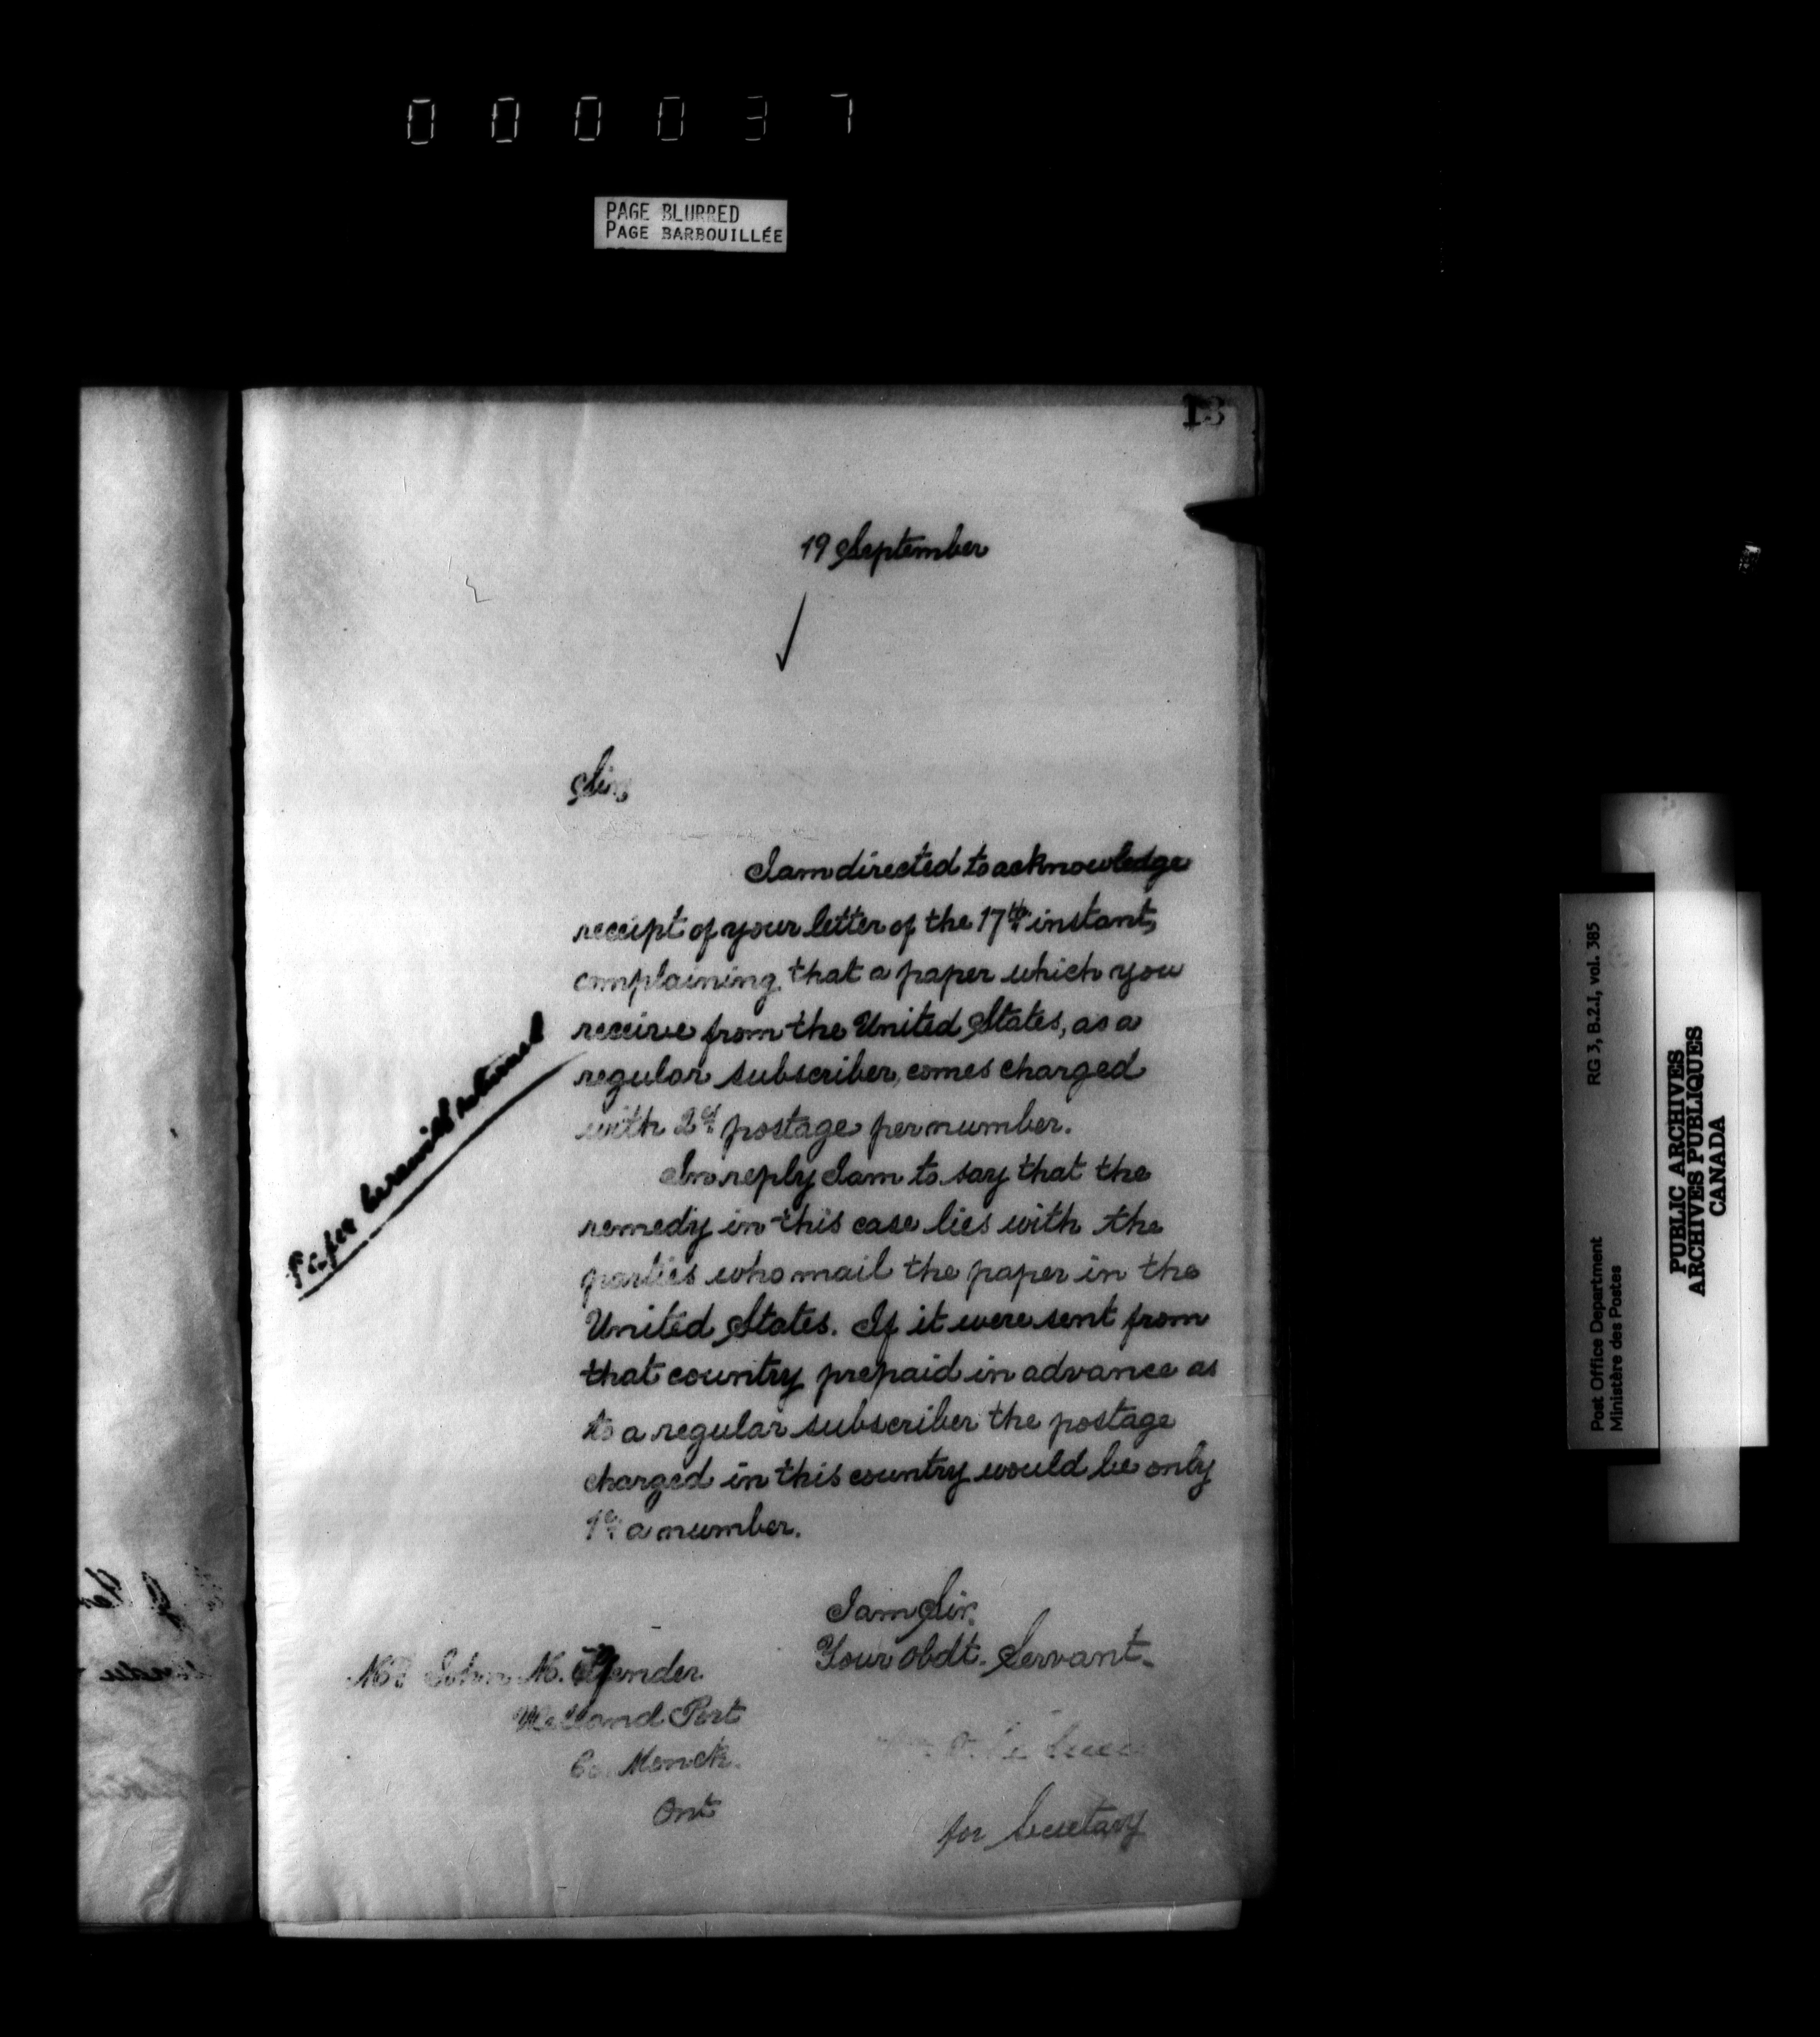 000037
PAGE BLURRED
PAGE BARBOUILLÉE
13
19 September
Sir,
I am directed to acknowledge
receipt of your letter of the 17th instant,
complaining that a paper which you
receive from the United States, as a
regular subscriber, comes charged
with 2cts postage per number.
In reply I am to say that the
remedy in this case lies with the
parties who mail the paper in the
United States. If it were sent from
that country prepaid in advance as
to a regular subscriber the postage
charged in this country would be only
1ct a number.
Paper herewith returned
I am Sir,
Your Obdt. Servant.
Mr John M.
Welland Port
Co. Monck.
Ont
for Secretary
RG 3, B.2.I, vol. 385
Post Office Department
Ministère des Postes
PUBLIC ARCHIVES
ARCHIVES PUBLIQUES
CANADA